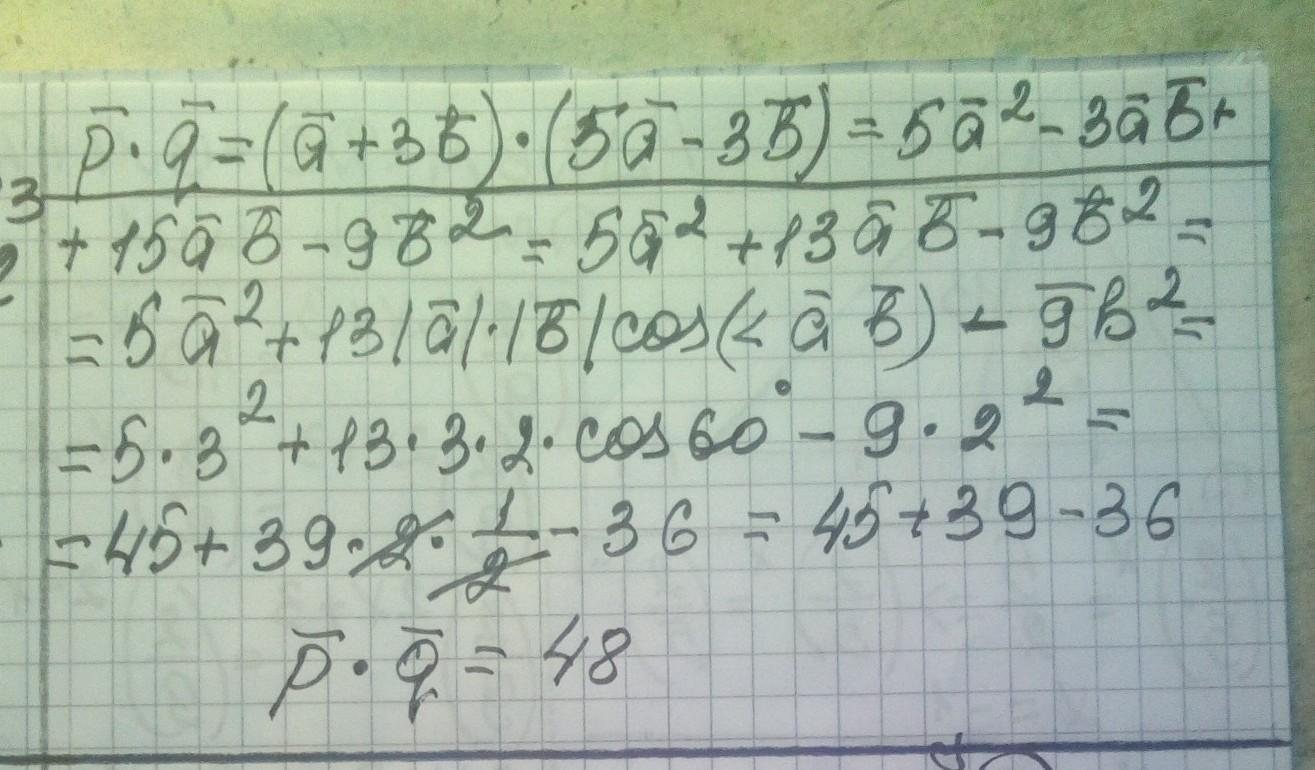 p̄ · q̄ = (ā + 3b̄) · (5ā - 3b̄) = 5ā² - 3āb̄ +
3
+ 15āb̄ - 9b̄² = 5ā² + 13āb̄ - 9b̄² =
= 5ā² + 13|ā|·|b̄|cos(< ā b̄) - 9̄b² =
= 5 · 3² + 13 · 3 · 2 · cos 60° - 9 · 2² =
= 45 + 39 · 2 · 1/2 - 36 = 45 + 39 - 36
p̄ · q̄ = 48